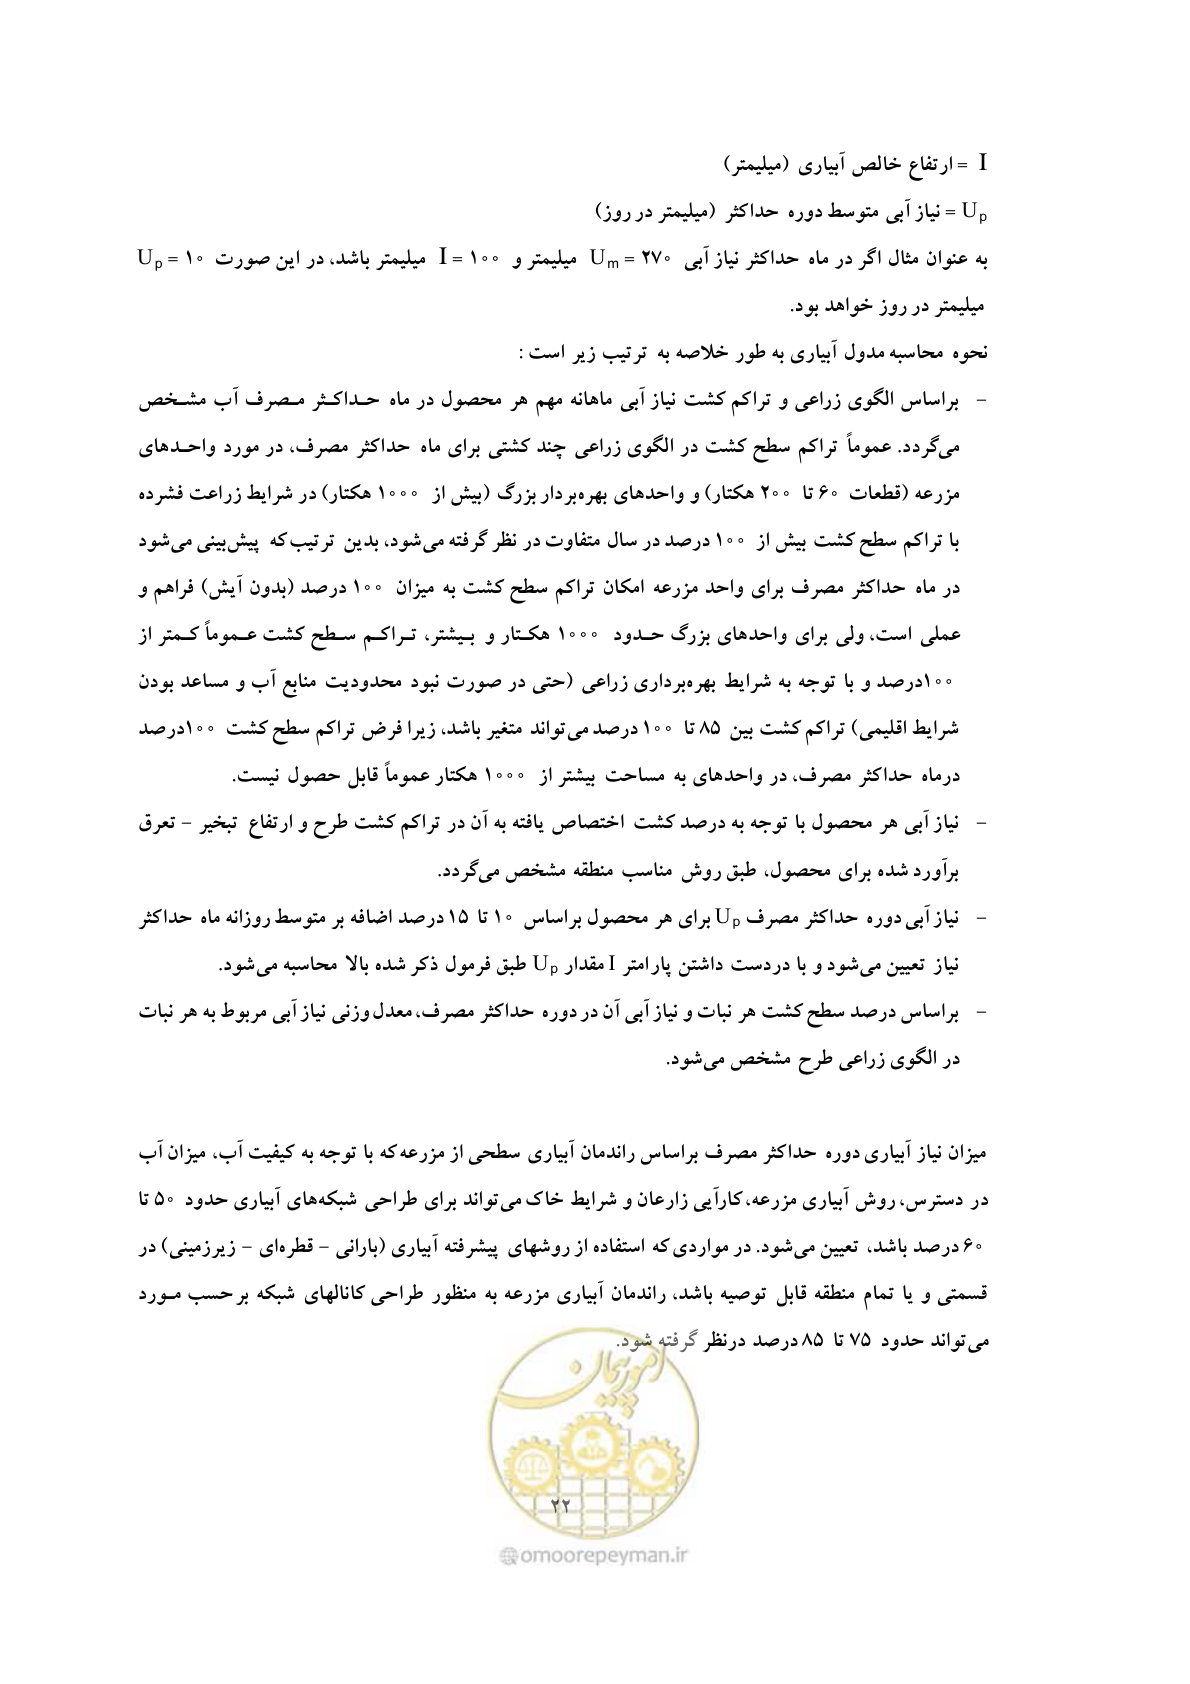 I = ارتفاع خالص آبیاری (میلیمتر)
Up = نیاز آبی متوسط دوره حداکثر (میلیمتر در روز)
به عنوان مثال اگر در ماه حداکثر نیاز آبی Um = ۲۷۰ میلیمتر و I = ۱۰۰ میلیمتر باشد، در این صورت Up = ۱۰
میلیمتر در روز خواهد بود.
نحوه محاسبه مدول آبیاری به طور خلاصه به ترتیب زیر است :
– براساس الگوی زراعی و تراکم کشت نیاز آبی ماهانه مهم هر محصول در ماه حداکثر مصرف آب مشخص
می‌گردد. عموماً تراکم سطح کشت در الگوی زراعی چند کشتی برای ماه حداکثر مصرف، در مورد واحدهای
مزرعه (قطعات ۶۰ تا ۲۰۰ هکتار) و واحدهای بهره‌بردار بزرگ (بیش از ۱۰۰۰ هکتار) در شرایط زراعت فشرده
با تراکم سطح کشت بیش از ۱۰۰ درصد در سال متفاوت در نظر گرفته می‌شود، بدین ترتیب که پیش‌بینی می‌شود
در ماه حداکثر مصرف برای واحد مزرعه امکان تراکم سطح کشت به میزان ۱۰۰ درصد (بدون آیش) فراهم و
عملی است، ولی برای واحدهای بزرگ حدود ۱۰۰۰ هکتار و بیشتر، تراکم سطح کشت عموماً کمتر از
۱۰۰درصد و با توجه به شرایط بهره‌برداری زراعی (حتی در صورت نبود محدودیت منابع آب و مساعد بودن
شرایط اقلیمی) تراکم کشت بین ۸۵ تا ۱۰۰ درصد می‌تواند متغیر باشد، زیرا فرض تراکم سطح کشت ۱۰۰درصد
درماه حداکثر مصرف، در واحدهای به مساحت بیشتر از ۱۰۰۰ هکتار عموماً قابل حصول نیست.
– نیاز آبی هر محصول با توجه به درصد کشت اختصاص یافته به آن در تراکم کشت طرح و ارتفاع تبخیر – تعرق
برآورد شده برای محصول، طبق روش مناسب منطقه مشخص می‌گردد.
– نیاز آبی دوره حداکثر مصرف Up برای هر محصول براساس ۱۰ تا ۱۵ درصد اضافه بر متوسط روزانه ماه حداکثر
نیاز تعیین می‌شود و با دردست داشتن پارامتر I مقدار Up طبق فرمول ذکر شده بالا محاسبه می‌شود.
– براساس درصد سطح کشت هر نبات و نیاز آبی آن در دوره حداکثر مصرف، معدل وزنی نیاز آبی مربوط به هر نبات
در الگوی زراعی طرح مشخص می‌شود.
میزان نیاز آبیاری دوره حداکثر مصرف براساس راندمان آبیاری سطحی از مزرعه که با توجه به کیفیت آب، میزان آب
در دسترس، روش آبیاری مزرعه، کارآیی زارعان و شرایط خاک می‌تواند برای طراحی شبکه‌های آبیاری حدود ۵۰ تا
۶۰ درصد باشد، تعیین می‌شود. در مواردی که استفاده از روشهای پیشرفته آبیاری (بارانی – قطره‌ای – زیرزمینی) در
قسمتی و یا تمام منطقه قابل توصیه باشد، راندمان آبیاری مزرعه به منظور طراحی کانالهای شبکه برحسب مورد
می‌تواند حدود ۷۵ تا ۸۵ درصد درنظر گرفته شود.
امور پیمان
۲۲
omoorepeyman.ir